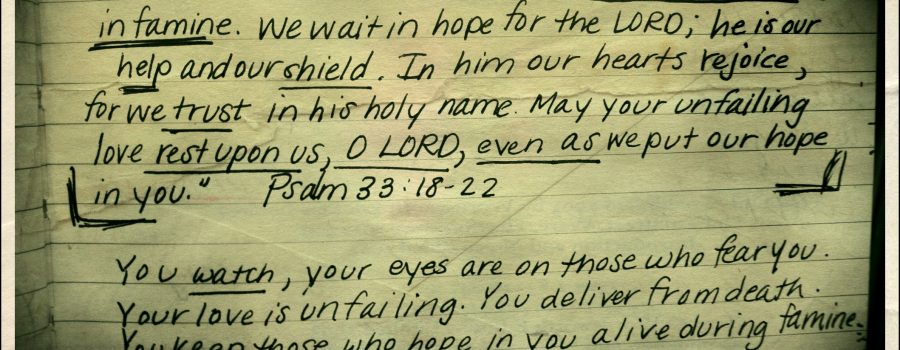 in famine. We wait in hope for the LORD; he is our
help and our shield. In him our hearts rejoice,
for we trust in his holy name. May your unfailing
love rest upon us, O LORD, even as we put our hope
in you." Psalm 33:18-22
You watch, your eyes are on those who fear you.
Your love is unfailing. You deliver from death.
You keep those who hope in you alive during famine.